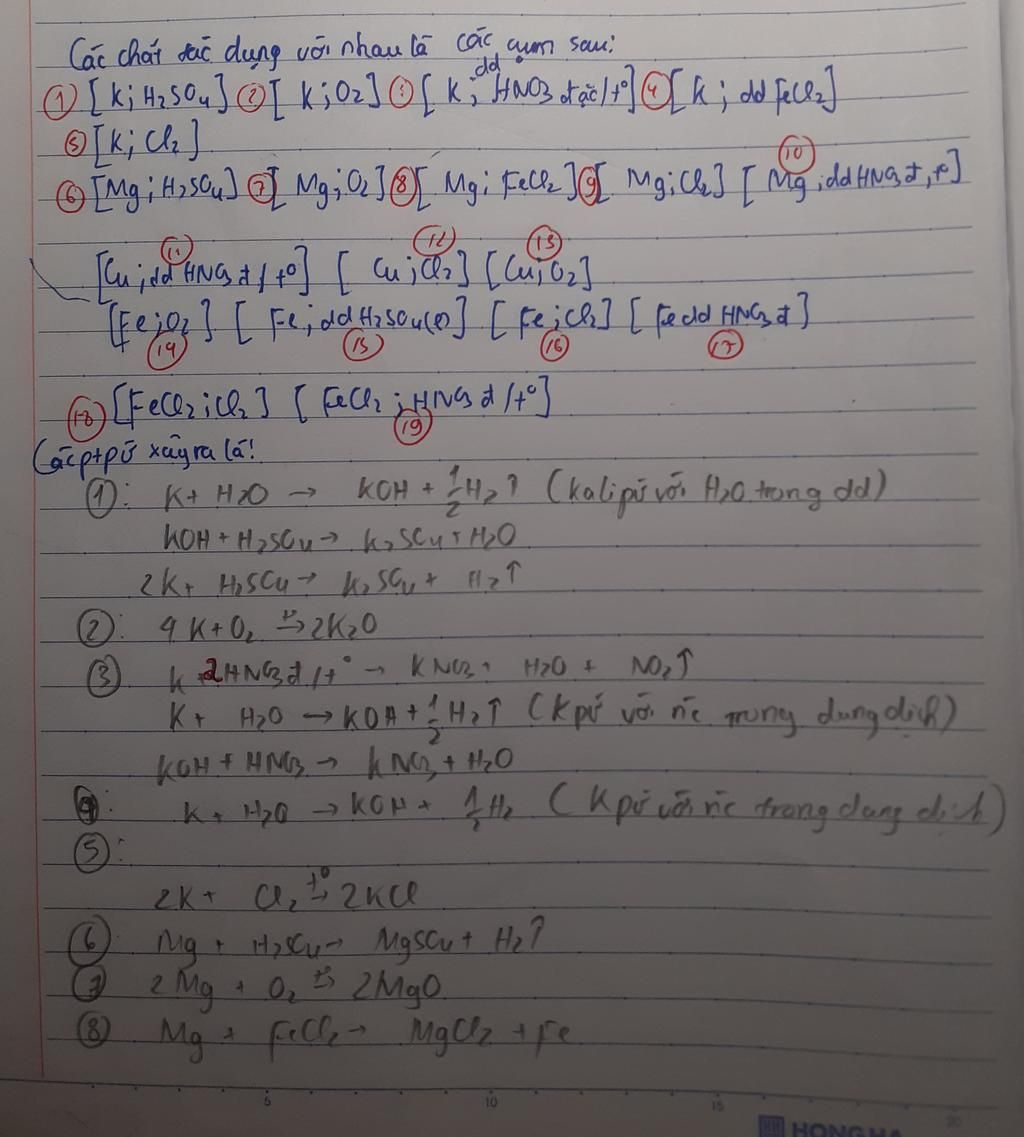 Các chất tác dụng với nhau là các cụm sau:
① [K; H2SO4] ② [K; O2] ③ [K; dd HNO3 đặc/t°] ④ [K; dd FeCl2]
⑤ [K; Cl2]
⑥ [Mg; H2SO4] ⑦ [Mg; O2] ⑧ [Mg; FeCl2] ⑨ [Mg; Cl2] ⑩ [Mg; dd HNO3 đ, t°]
⑪ [Cu; dd HNO3 đ/t°] ⑫ [Cu; Cl2] ⑬ [Cu; O2]
[Fe; O2] [Fe; dd H2SO4(l)] [Fe; Cl2] [Fe dd HNO3 đ]
⑭ ⑮ ⑯ ⑰
⑱ [FeCl2; Cl2] [FeCl2; HNO3 đ/t°]
⑲
Các ptpứ xảy ra là!
①: K + H2O → KOH + 1/2 H2↑ (Kali pứ với H2O trong dd)
KOH + H2SO4 → K2SO4 + H2O
2K + H2SO4 → K2SO4 + H2↑
②: 4K + O2 t°→ 2K2O
③ K + 2HNO3 đ/t° → KNO3 + H2O + NO2↑
K + H2O → KOH + 1/2 H2↑ (K pứ với nc trong dung dịch)
KOH + HNO3 → KNO3 + H2O
④: K + H2O → KOH + 1/2 H2 (K pứ với nc trong dung dịch)
⑤:
2K + Cl2 t°→ 2KCl
⑥: Mg + H2SO4 → MgSO4 + H2↑
⑦ 2Mg + O2 t°→ 2MgO
⑧ Mg + FeCl2 → MgCl2 + Fe
5 10 15 20
HONG HA